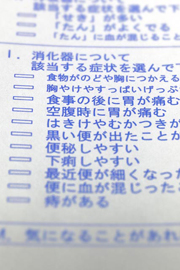 該当する症状を選んで下
「せき」が多い
「たん」がよくでる
「たん」に血が混じること
1. 消化器について
該当する症状を選んで下
食物がのどや胸につかえる
胸やけやすっぱいげっぷ
食事の後に胃が痛む
空腹時に胃が痛む
はきけやむかつきが
黒い便が出たことが
便秘しやすい
下痢しやすい
最近便が細くなった
便に血が混じった
痔がある
気になることがあれ